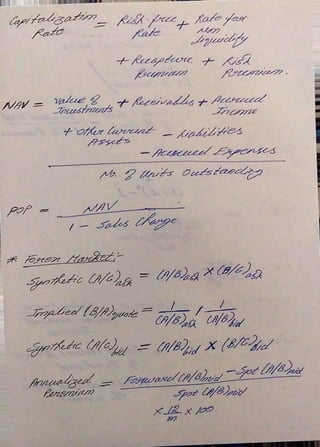 Capitalization = Risk free + Rate for
Rate Rate Non
liquidity
+ Recapture + Risk
Premium Premium.
NAV = Value of + Receivables + Accrued
Investments Income
+ Other Current - Liabilities
Assets
- Accrued Expenses
No. of Units Outstanding
POP = NAV
1 - Sales Charge
* Forex Market:-
Synthetic (A/C)ask = (A/B)ask X (B/C)ask
Implied (B/A)quote = 1/(A/B)ask / 1/(A/B)bid
Synthetic (A/C)bid = (A/B)bid X (B/C)bid
Annualized = Forward (A/B)mid - Spot (A/B)mid
Premium Spot (A/B)mid
x 12/m x 100